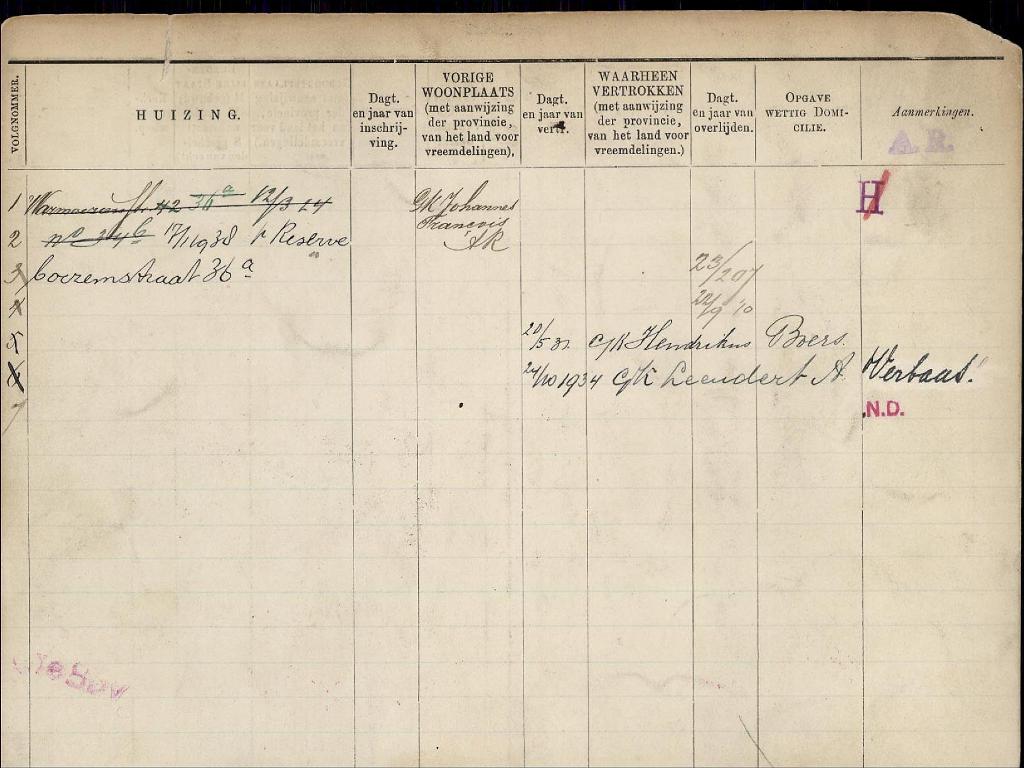 VOLGNOMMER.
HUIZING.
Dagt. en jaar van inschrijving.
VORIGE WOONPLAATS (met aanwijzing der provincie, van het land voor vreemdelingen),
Dagt. en jaar van vertr.
WAARHEEN VERTROKKEN (met aanwijzing der provincie, van het land voor vreemdelingen.)
Dagt. en jaar van overlijden.
OPGAVE WETTIG DOMICILIE.
Aanmerkingen.
A.R.
1 42 36a 12/3 14 GK Johannes H
Francois
2 no 34b 17/1 1938 Reserve AR
3 36a 23/2 07
4 22/9 10
5 20/5 31 GK Hendrikus Boers.
6 24/10 1934 GK Leendert A Verbaas.
7 N.D.